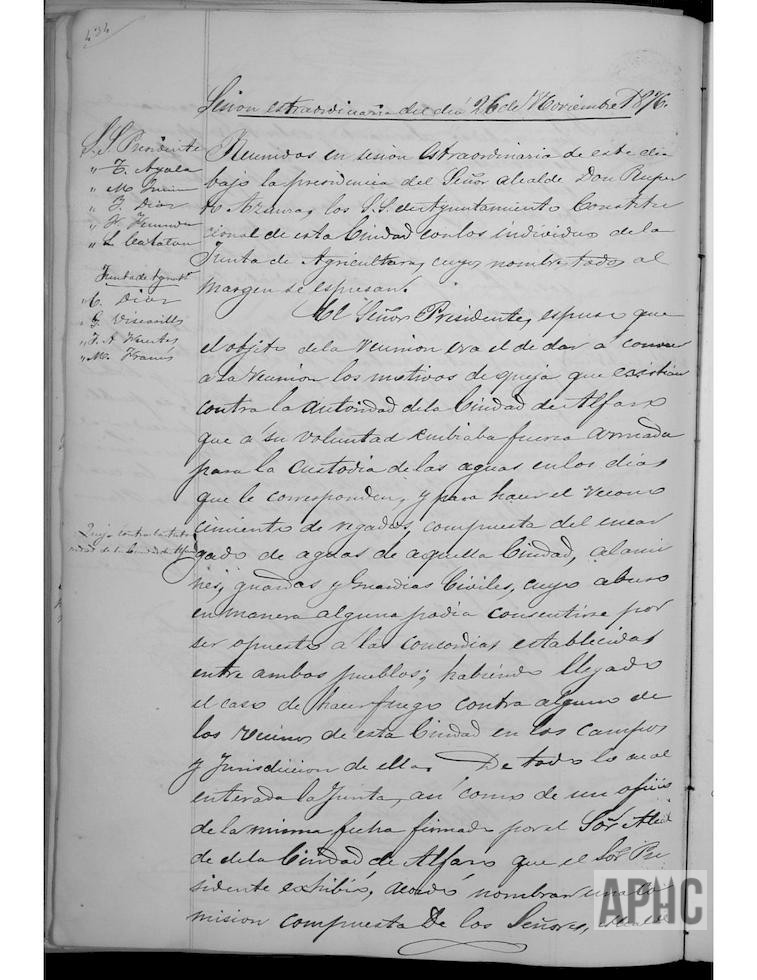 434
Sesion estraordinaria del dia 26 de Noviembre 1876.
S.S. Presidente
" T. Ayala
" M.
" J. Diaz
" L. Calatan
Junta de Agrilt.
" C. Diaz
" G.
" J. A. Fuertes
" M. Francés
Reunidos en sesion Estraordinaria de este dia
bajo la presidencia del Señor alcalde Don Ruper
to los S.S. de Ayuntamiento Constitu
cional de esta Ciudad con los individuos de la
Junta de Agricultura, cuyos nombres todos al
margen se espresan.
El Señor Presidente, espuso que
el objeto de la reunion era el de dar a conocer
a la reunion los motivos de queja que existian
contra la autoridad de la Ciudad de Alfaro
que á su voluntad embiaba fuerza armada
para la custodia de las aguas en los dias
que le corresponden, y para hacer el recono
Queja contra la auto
ridad de la Ciudad de Alfaro
cimiento de regados, compuesta del encar
gado de aguas de aquella Ciudad, alami
nes, guardas y Guardias Civiles, cuyo abuso
en manera alguna podia consentirse por
ser opuesto a las concordias establecidas
entre ambos pueblos; habiendo llegado
el caso de hacer fuego contra alguno de
los vecinos de esta Ciudad en los campos
y Jurisdiccion de ella. De todo lo cual
enterada la Junta, asi como de un oficio
de la misma fecha firmado por el Sor. Alcal
de de la Ciudad de Alfaro que el Sor. Pre
sidente exhibió, acordó nombrar una Co
mision compuesta De los Señores, Alcalde
APHC